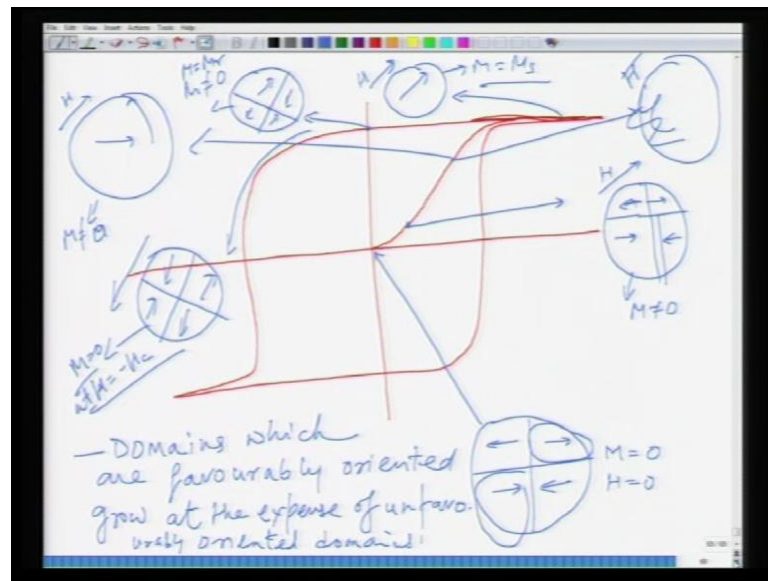 File Edit View Insert Actions Tools Help
H
M=Mr
M≠0
H
M=Ms
H
M≠0
H
M≠0
M=0
at H=-Hc
M=0
H=0
— DOMAINS which
are favourably oriented
grow at the expense of unfavo-
urably oriented domains.